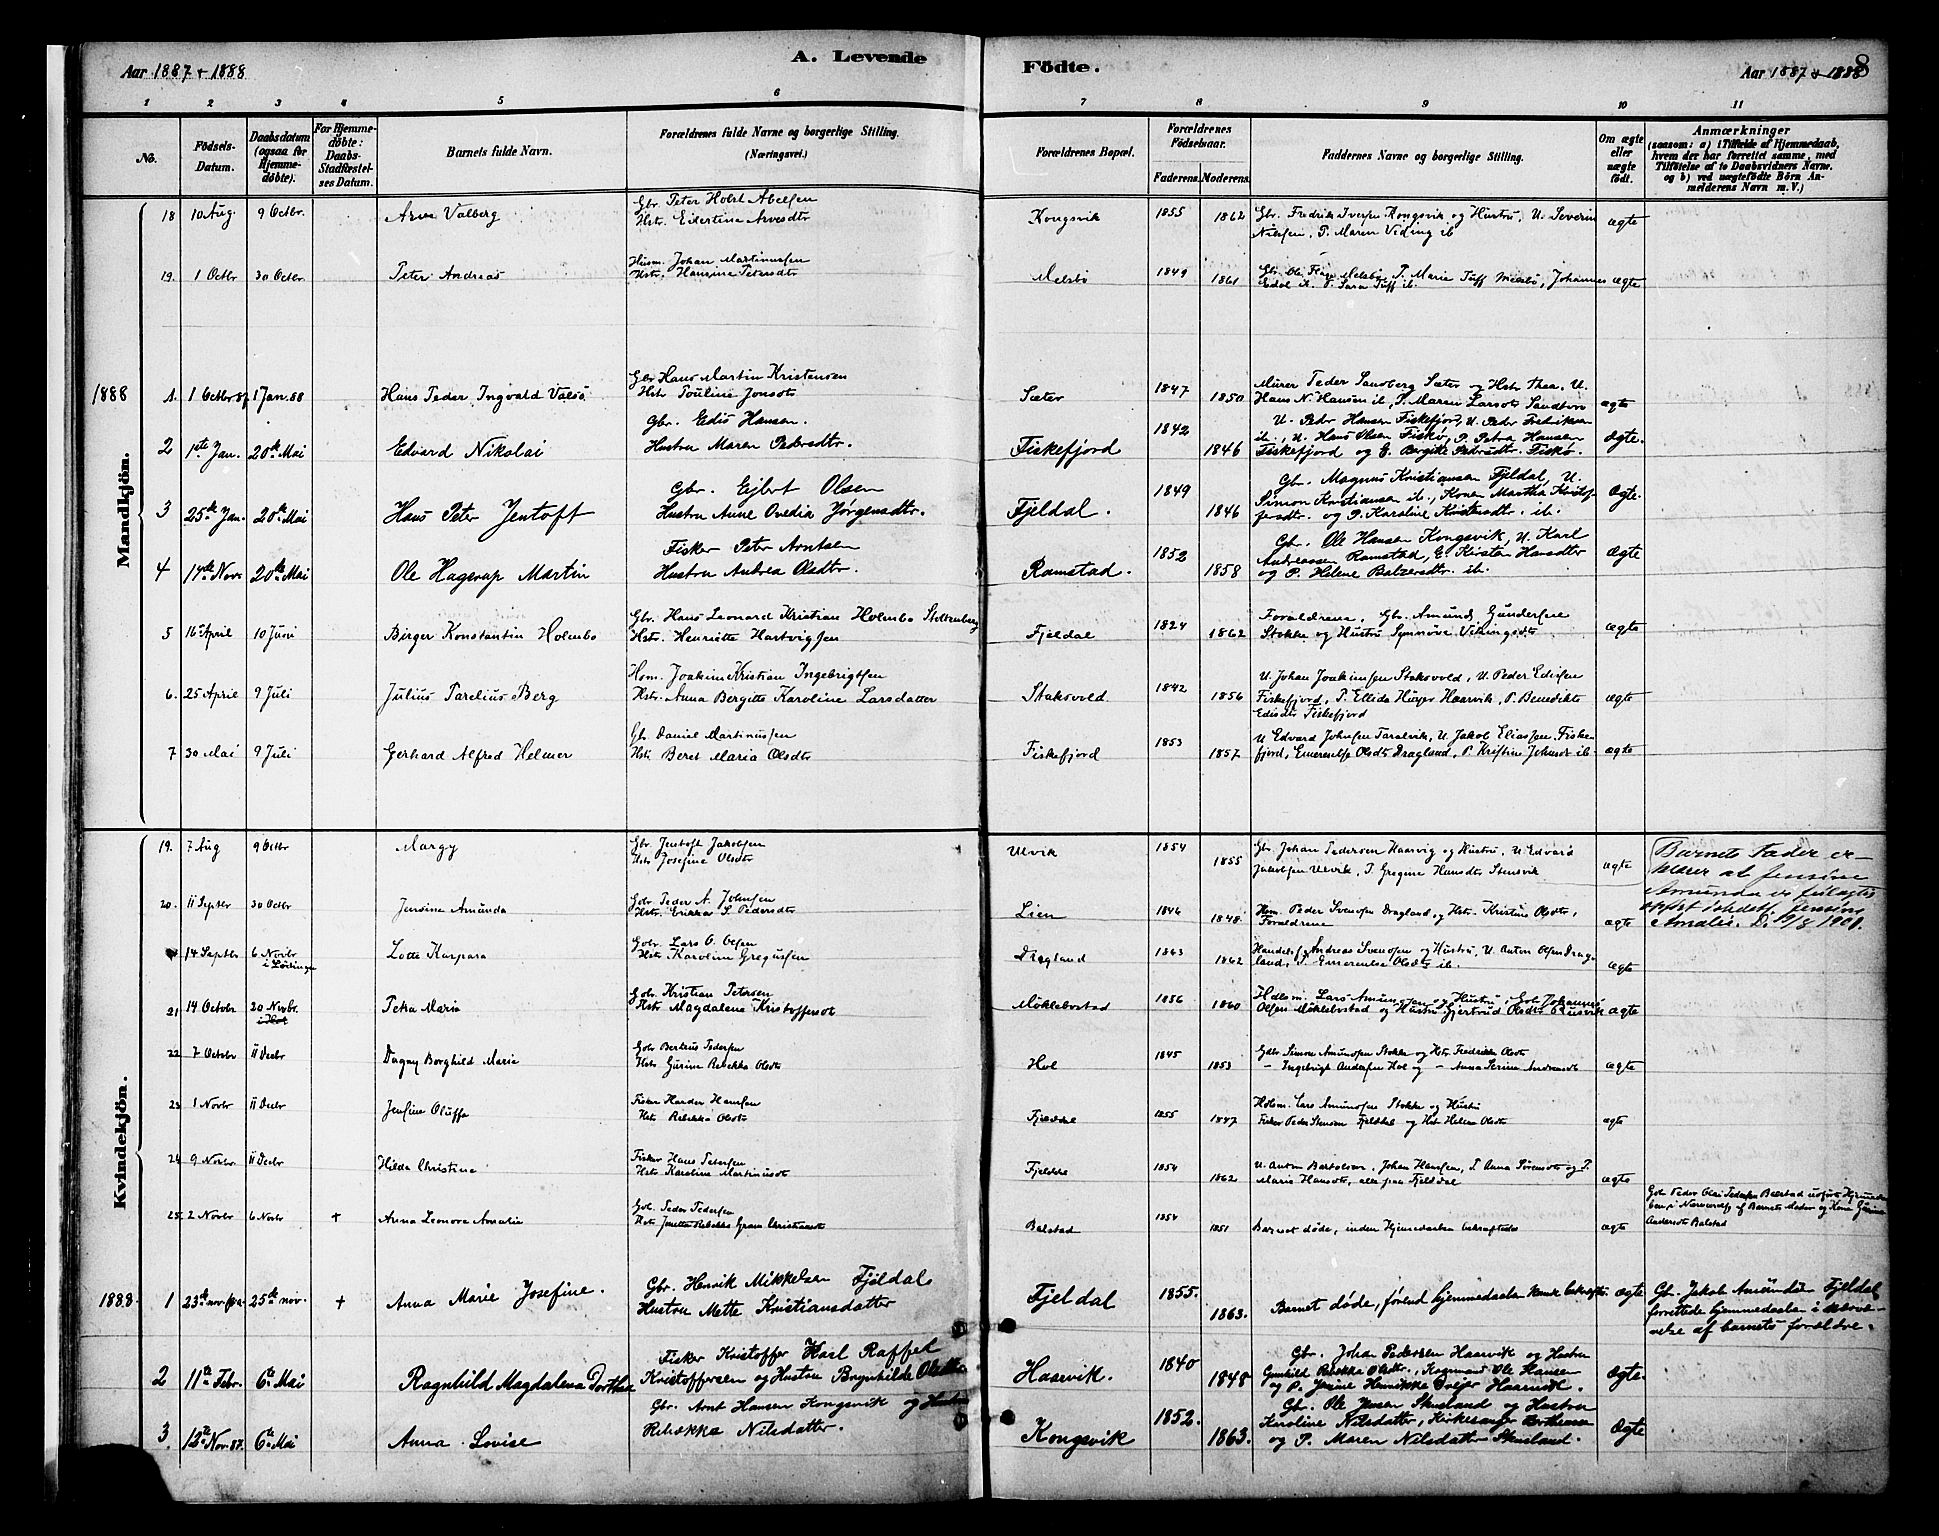 Aar 1887 + 1888
A. Levende
Födte.
Aar 1887 + 1888
8
1 2 3 4 5 6 7 8 9 10 11
No.
Födsels-Datum.
Daabsdatum (ogsaa for Hjemme-döbte).
For Hjemme-döbte: Daabs-Stadfæstel-ses Datum.
Barnets fulde Navn.
Forældrenes fulde Navne og borgerlige Stilling. (Næringsvei.)
Forældrenes Bopæl.
Forældrenes Födselsaar.
Faderens. Moderens.
Faddernes Navne og borgerlige Stilling.
Om ægte eller uægte födt.
Anmærkninger
(saasom: a) i Tilfælde af Hjemmedaab, hvem der har forrettet samme, med Tilföielse af to Daabsvidners Navne. og b) ved uægtefödte Börn An-melderens Navn m. V.)
Mandkjön.
18 10 Aug. 9 Octbr. Arve Valberg
Gbr. Peter Holst Abelsen
Hstr. Edertine Arvesdtr
Kongsvik 1855 1862
Gbr. Fredrik Iversen Kongsvik og Hustru, U. Severin
Nilssen, P. Maren Viding ib
ægte
19. 1 Octbr 30 Octbr Peter Andreas
Husm. Johan Martinussen
Hstr. Hansine Petersdtr
Melsbö 1849 1861
P. Marie Tuff Melsbö, Johannes
Sara Tuff ib.
ægte
1888
1. 1 Octbr 87 1 Jan. 88 Hans Peder Ingvald Valsö
Gbr Hans Martin Kristensen
Hstr Pouline Jonsdtr
Sæter 1847 1850
Murer Peder Sandberg Sæter og Hstr Thea, U.
Hans N. Hansen ib, P. Maren Larsdtr Sandtorv
ægte
2 1ste Jan. 20de Mai Edvard Nikolai
Gbr. Edis Hansen.
Hustru Maren Pedersdtr.
Fiskefjord 1842 1846
U. Peder Hansen Fiskefjord, U. Peder Fredriksen
ib., U. Hans Olsen Fiskö, P. Petra Hansen
Fiskefjord og E. Bergitte Pedersdtr. Fiskö.
Ægte.
3 25de Jan. 20de Mai Hans Peter Jentoft
Gbr. Ejlert Olsen
Hustru Anne Ovedia Jørgensdtr.
Fjeldal. 1849 1846
Gbr. Magnus Kristiansen Fjeldal, U.
Simon Kristiansen ib., Konen Martha Kristof-
fersdtr. og P. Karoline Kristensdtr. ib.
Ægte.
4 17de Novr 20de Mai Ole Hagerup Martin
Fisker Peter Arntsen
Hustru Andrea Olsdtr.
Ramstad. 1852 1858
Gbr. Ole Hansen Kongsvik, U. Karl
Andreasen Ramstad, E. Kirsten Hansdtr
og P. Helene Balzersdtr. ib.
Ægte
5 16 April 10 Juni Birger Konstantin Holmbo
Gbr. Hans Leonard Kristian Holmbo Soltenberg
Hstr. Henriette Hartvigsen
Fjeldal 1824 1862
Forældrene, Gbr. Amund Gundersen
Stokke og Hustru Synnöve Vikingsdtr
Ægte
6. 25 April 9 Juli Julius Parelius Berg
Hsm. Joakim Kristian Ingebrigtsen
Hstr. Anna Bergitte Karoline Larsdatter
Staksvold 1842 1856
U. Johan Joakimsen Staksvold, U. Peder Edissen
Fiskefjord, P. Ellida Haarvik, P. Benedikte
Edisdtr Fiskefjord
ægte
7 30 Mai 9 Juli Gerhard Alfred Helmer
Gbr Daniel Martinussen
Hstr Beret Maria Olsdtr
Fiskefjord 1853 1857
U Edvard Johnsen Taralvik, U. Jakob Eliassen Fiske-
fjord, Emerentse Olsdtr Dragland, P. Kristine Johnsdtr ib
ægte
Kvindekjön.
19. 7 Aug 9 Octbr Margy
Gbr Jentoft Jakobsen
Hstr Josefine Olsdtr
Ulvik 1854 1855
Gbr. Johan Pedersen Haarvig og Hustru, U Edvard
Jakobsen Ulvik, P. Gregine Hansdtr Stensvik
ægte
Barnets Fader er-
klærer at Jensine
Amunda er feilagtig
opført istedetf. Jensine
Amalie. D. 10/8 1901.
20. 11 Septbr 30 Octbr Jensine Amunda
Gbr. Peder A. Johnsen
Hstr. Erikka S. Pedersdtr
Lien 1846 1848
Hsm. Peder Svensen Dragland og Hstr. Kristine Olsdtr,
Forældrene
ægte
14 Septbr 6 Novbr i Lödingen Lotte Kaspara
Gbr. Lars O. Olsen
Hstr Karoline Gregussen
Dragland 1863 1862
Handelsf. Andreas Svensen og Hustru, U. Anton Olsen Drag-
land, P. Emerentse Olsdtr ib.
ægte
21 14 Octobr 20 Novbr. Petra Maria
Gbr. Kristian Petersen
Hstr Magdalena Kristoffersdt
Möklebostad 1856 1860
Hdlsm. Lars Amundsen og Hustru, Gbr Johannes
Olsen Möklebostad og Hustru Gjertrud Olsdtr
ægte
22 7 Octobr 11 Decbr Dagny Borghild Marie
Gbr Berteus Pedersen
Hstr Gurine Rebekka Olsdtr
Hol 1845 1853
Gdbr Simon Amundsen Stokke og Hstr Fredrikke Olsdtr
— Ingebrigt Andersen Hol og — Anna Serine Andreasdt
ægte
23 1 Novbr 11 Decbr Jensine Oluffa
Fisker Harder Hansen
Hstr Rebekka Olsdtr
Fjelddal 1855 1847
Hdlsm. Lars Amundsen Stokke og Hustru
Fisker Peder Stensen Fjelddal og Hstr Helene Olsdtr
ægte
24 9 Novbr 11 Decbr Hilda Christine
Fisker Hans Petersen
Hstr Karoline Martinusdt
Fjelddal 1854 1862
U. Anton Bartolsen, Johan Hansen, P. Anna Sörensdtr og P.
Marie Hansdtr, alle paa Fjelddal
ægte
25. 2 Novbr 6 Novbr + Anna Leonora Amalia
Gbr. Peder Pedersen
Hstr Jonetta Rebekka Grans Christiansdt
Balstad 1854 1851
Barnet døde, inden Hjemmedaaben bekræftedes
ægte
Gbr Peder Olai Pedersen Balstad udførte Hjemmedaa-
ben i Nærværelse af Barnets Moder og Kone Gurine
Andersdtr Balstad
1888. 1 23de nov. 25de nov. + Anna Marie Josefine.
Gbr. Henrik Mikkelsen Fjeldal
Hustru Mette Kristiansdatter
Fjeldal 1855. 1863.
Barnet døde, førend hjemmedaaben kunde bekræftes.
ægte
Gb. Jakob Amundsen Fjeldal
forrettede hjemmedaaben i nærvæ-
relse af barnets forældre.
2 11te Febr. 6te Mai Ragnhild Magdalena Dorthea
Fisker Kristoffer Karl Raffel
Kristoffersen og Hustru Bagnhilde Olsdtr
Haarvik. 1840 1848
Gbr. Johan Pedersen Haarvik og Hustru
Gunhild Rebekka Olsdtr., Kapmand Ole Hansen
og P. Jensine Henrikke Dreyer Haarvik.
Ægte.
3. 12te Nov. 87. 6te Mai Anna Lovise
Gbr. Arnt Hansen Kongsvik og Hustru
Rebekka Nilsdatter.
Kongsvik 1852. 1863.
Gbr. Ole Jensen Skusland og Hustru
Karoline Nilsdatter, Kirkesanger Berthensen
og P. Maren Nilsdatter Skusland.
Ægte